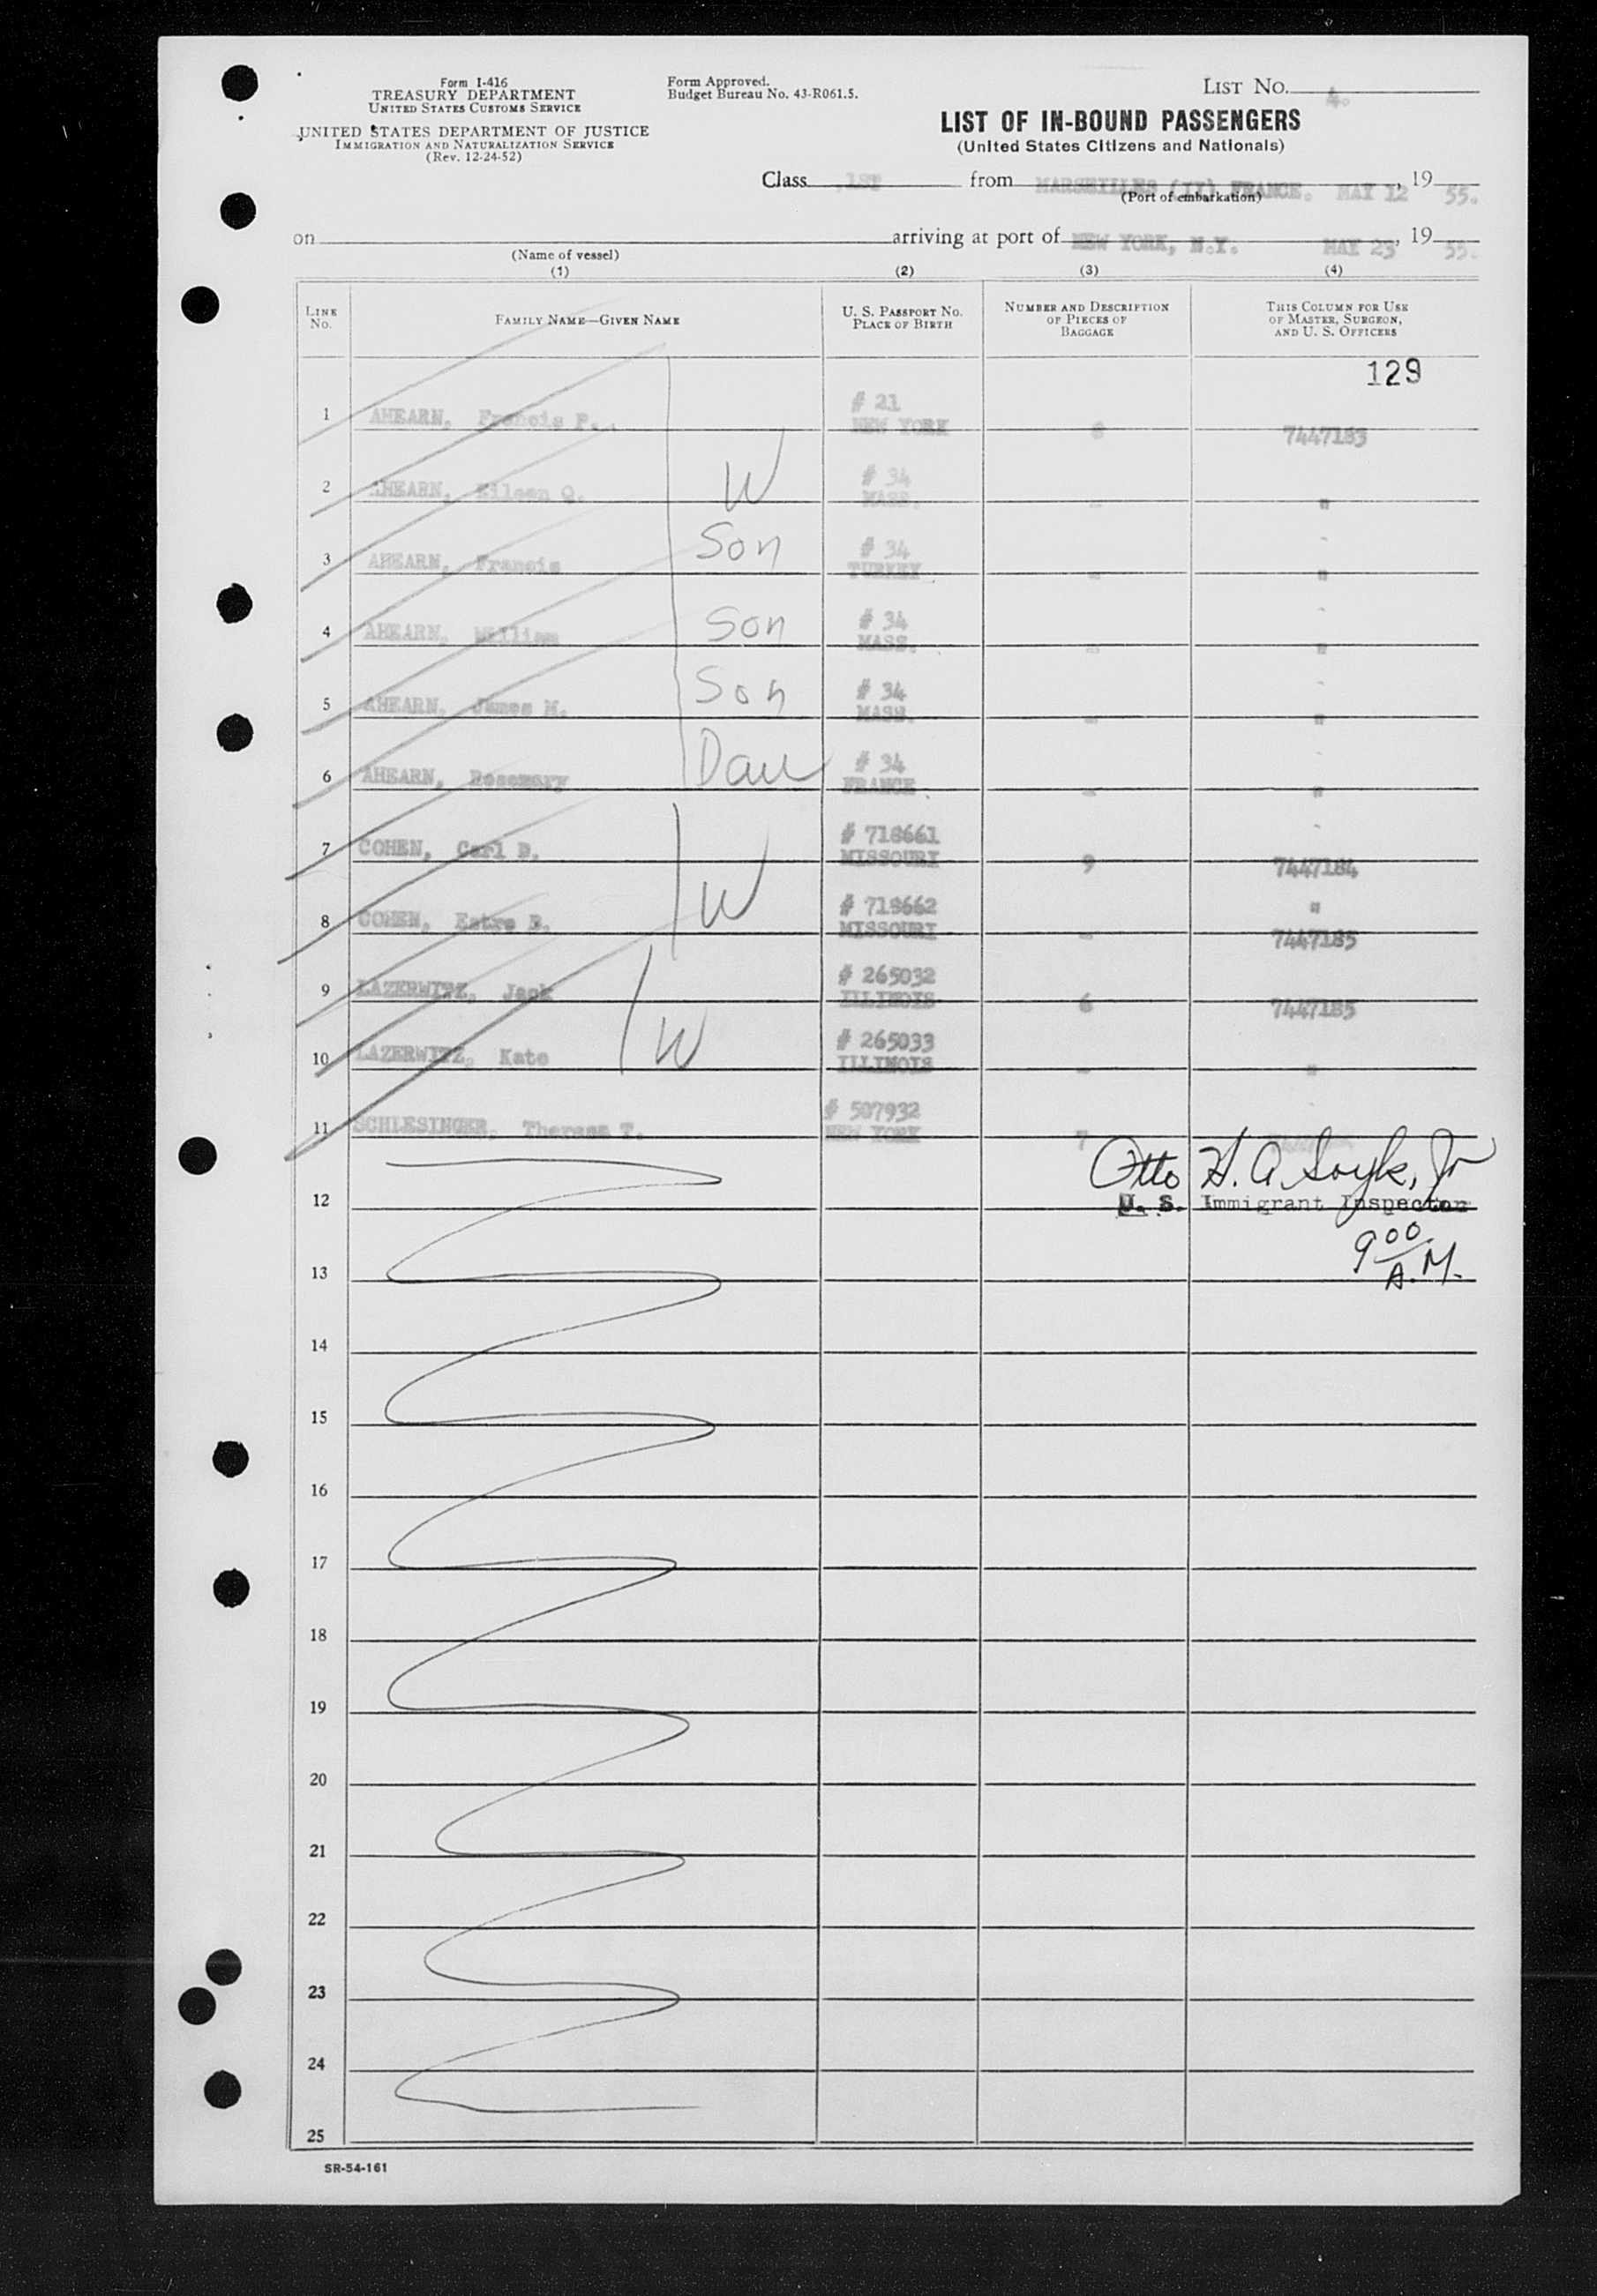 Form I-416
TREASURY DEPARTMENT
UNITED STATES CUSTOMS SERVICE
UNITED STATES DEPARTMENT OF JUSTICE
IMMIGRATION AND NATURALIZATION SERVICE
(Rev. 12-24-52)
Form Approved.
Budget Bureau No. 43-R061.5.
LIST NO. 4.
LIST OF IN-BOUND PASSENGERS
(United States Citizens and Nationals)
Class 1ST from MARSEILLES (II) FRANCE. MAY 12, 19 55.
(Port of embarkation)
on arriving at port of NEW YORK, N.Y. MAY 23, 19 55.
(Name of vessel)
(1) (2) (3) (4)
LINE No. FAMILY NAME—GIVEN NAME U. S. PASSPORT NO. PLACE OF BIRTH NUMBER AND DESCRIPTION OF PIECES OF BAGGAGE THIS COLUMN FOR USE OF MASTER, SURGEON, AND U. S. OFFICERS
129
1 AHEARN, Francis P. # 21 NEW YORK 8 7447183
2 AHEARN, Eileen Q. W # 34 MASS. – "
3 AHEARN, Francis Son # 34 TURKEY – "
4 AHEARN, William Son # 34 MASS. – "
5 AHEARN, James M. Son # 34 MASS. – "
6 AHEARN, Rosemary Dau # 34 FRANCE – "
7 COHEN, Carl B. # 718661 MISSOURI 9 7447184
8 COHEN, B. W # 718662 MISSOURI – " 7447185
9 LAZERWITZ, Jack # 265032 ILLINOIS 6 7447185
10 LAZERWITZ, Kate W # 265033 ILLINOIS – "
11 SCHLESINGER, Theresa T. # 507932 NEW YORK 7
Otto H. A. Soyk, Jr
12 U. S. Immigrant Inspector
9 00 A.M.
13
14
15
16
17
18
19
20
21
22
23
24
25
SR-54-161